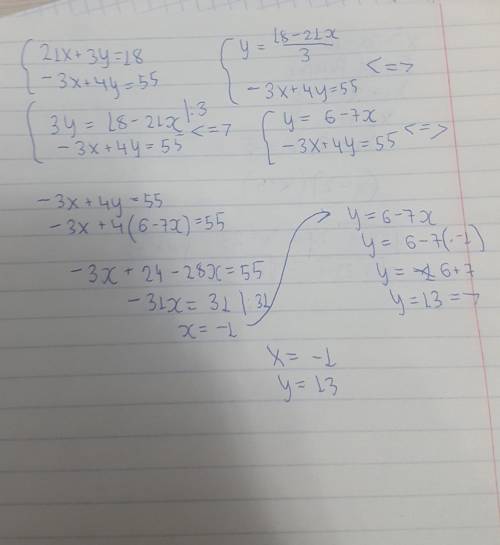 21x+3y=18
-3x+4y=55
3y = 18-21x |:3
-3x+4y=55 <=>
y = 18-21x / 3
-3x+4y=55 <=>
y = 6-7x
-3x+4y=55 <=>
-3x+4y=55
-3x+4(6-7x)=55
-3x+24-28x=55
-31x=31 | 31
x=-1
y=6-7x
y= 6-7(·-1)
y= 6+7
y=13 =>
x= -1
y=13